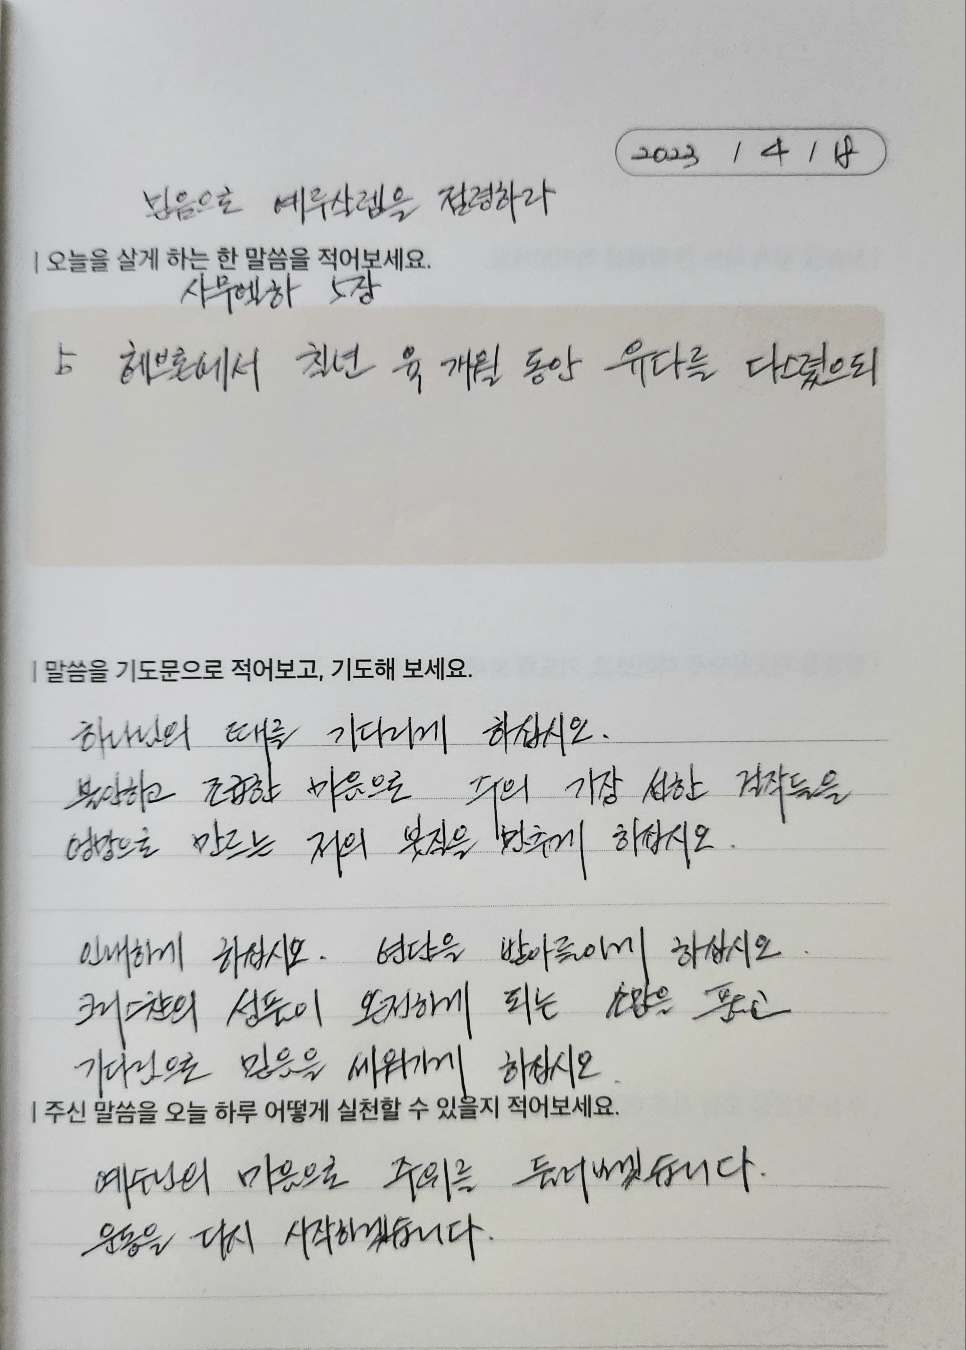 2023 / 4 / 18
믿음으로 예루살렘을 점령하라
| 오늘을 살게 하는 한 말씀을 적어보세요.
사무엘하 5장
5 헤브론에서 칠년 육 개월 동안 유다를 다스렸으되
| 말씀을 기도문으로 적어보고, 기도해 보세요.
하나님의 때를 기다리게 하십시오.
불안하고 조급한 마음으로 주의 가장 선한 걸작들을
엉망으로 만드는 저의 붓질을 멈추게 하십시오.
인내하게 하십시오. 연단을 받아들이게 하십시오.
크리스찬의 성품이 온전하게 되는 소망을 품고
기다림으로 믿음을 세워가게 하십시오.
| 주신 말씀을 오늘 하루 어떻게 실천할 수 있을지 적어보세요.
예수님의 마음으로 주위를 둘러보겠습니다.
운동을 다시 시작하겠습니다.